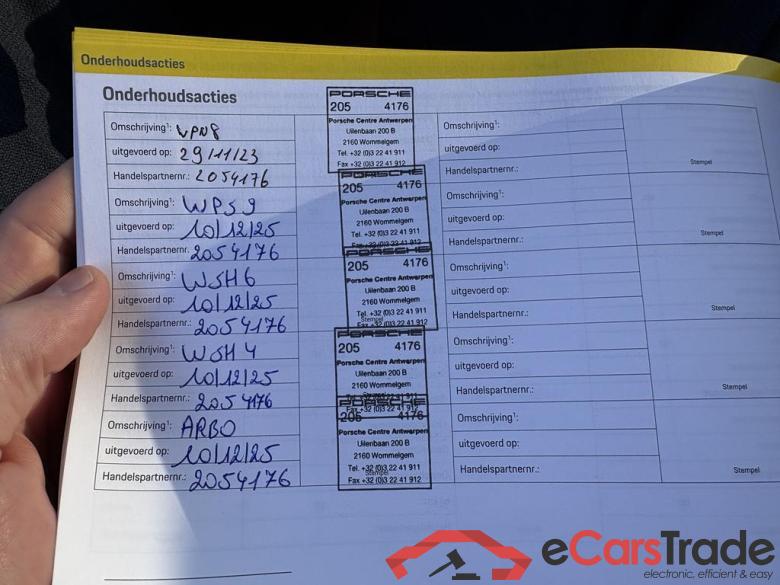 Onderhoudsacties
Onderhoudsacties
Omschrijving¹: WPN8
uitgevoerd op: 29/11/23
Handelspartnernr.: 2054176
PORSCHE
205 4176
Porsche Centre Antwerpen
Uilenbaan 200 B
2160 Wommelgem
Tel. +32 (0)3 22 41 911
Fax +32 (0)3 22 41 912
Omschrijving¹:
uitgevoerd op:
Handelspartnernr.:
Stempel
Omschrijving¹: WPS9
uitgevoerd op: 10/12/25
Handelspartnernr. 2054176
PORSCHE
205 4176
Porsche Centre Antwerpen
Uilenbaan 200 B
2160 Wommelgem
Tel. +32 (0)3 22 41 911
Fax +32 (0)3 22 41 912
Omschrijving¹:
uitgevoerd op:
Handelspartnernr.:
Stempel
Omschrijving¹: WSH6
uitgevoerd op: 10/12/25
Handelspartnernr.: 2054176
PORSCHE
205 4176
Porsche Centre Antwerpen
Uilenbaan 200 B
2160 Wommelgem
Tel. +32 (0)3 22 41 911
Stempel
Fax +32 (0)3 22 41 912
Omschrijving¹:
uitgevoerd op:
Handelspartnernr.:
Stempel
Omschrijving¹: WSH4
uitgevoerd op: 10/12/25
Handelspartnernr.: 2054176
PORSCHE
205 4176
Porsche Centre Antwerpen
Uilenbaan 200 B
2160 Wommelgem
Fax +32 (0)3 22 41 912
Omschrijving¹:
uitgevoerd op:
Handelspartnernr.:
Stempel
Omschrijving¹: ARBO
uitgevoerd op: 10/12/25
Handelspartnernr.: 2054176
PORSCHE
205 4176
Porsche Centre Antwerpen
Uilenbaan 200 B
2160 Wommelgem
Tel. +32 (0)3 22 41 911
Stempel
Fax +32 (0)3 22 41 912
Omschrijving¹:
uitgevoerd op:
Handelspartnernr.:
Stempel
eCarsTrade
electronic, efficient & easy